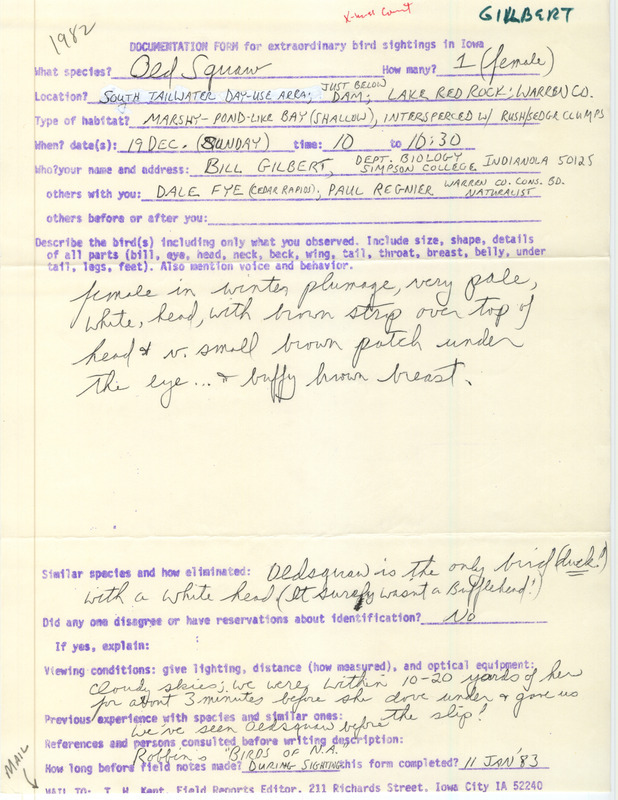 X-mas Count
GILBERT
1982
DOCUMENTATION FORM for extraordinary bird sightings in Iowa
What species? Old Squaw How many? 1 (female)
Location? SOUTH TAILWATER DAY-USE AREA; JUST BELOW DAM; LAKE RED ROCK; WARREN CO.
Type of habitat? MARSHY-POND-LIKE BAY (SHALLOW), INTERSPERCED W/ RUSH/SEDGE CLUMPS
When? date(s): 19 DEC. (SUNDAY) time: 10 to 10:30
Who?your name and address: BILL GILBERT, DEPT. BIOLOGY SIMPSON COLLEGE INDIANOLA 50125
others with you: DALE FYE (CEDAR RAPIDS); PAUL REGNIER WARREN CO. CONS. BD. NATURALIST
others before or after you:
Describe the bird(s) including only what you observed. Include size, shape, details
of all parts (bill, eye, head, neck, back, wing, tail, throat, breast, belly, under
tail, legs, feet). Also mention voice and behavior.
female in winter plumage, very pale,
white, head, with brown strip over top of
head & v. small brown patch under
the eye... & buffy brown breast.
Similar species and how eliminated: Oldsquaw is the only bird (duck!)
with a white head (It surely wasn't a Bufflehead!)
Did any one disagree or have reservations about identification? No
If yes, explain:
Viewing conditions: give lighting, distance (how measured), and optical equipment:
cloudy skies; we were within 10-20 yards of her
for about 3 minutes before she dove under & gave us
the slip!
Previous experience with species and similar ones:
We've seen Oldsquaw before
References and persons consulted before writing description:
Robbin's "BIRDS OF N.A."
How long before field notes made? DURING SIGHTING this form completed? 11 JAN '83
MAIL
MAIL TO: T. H. Kent, Field Reports Editor, 211 Richards Street, Iowa City IA 52240